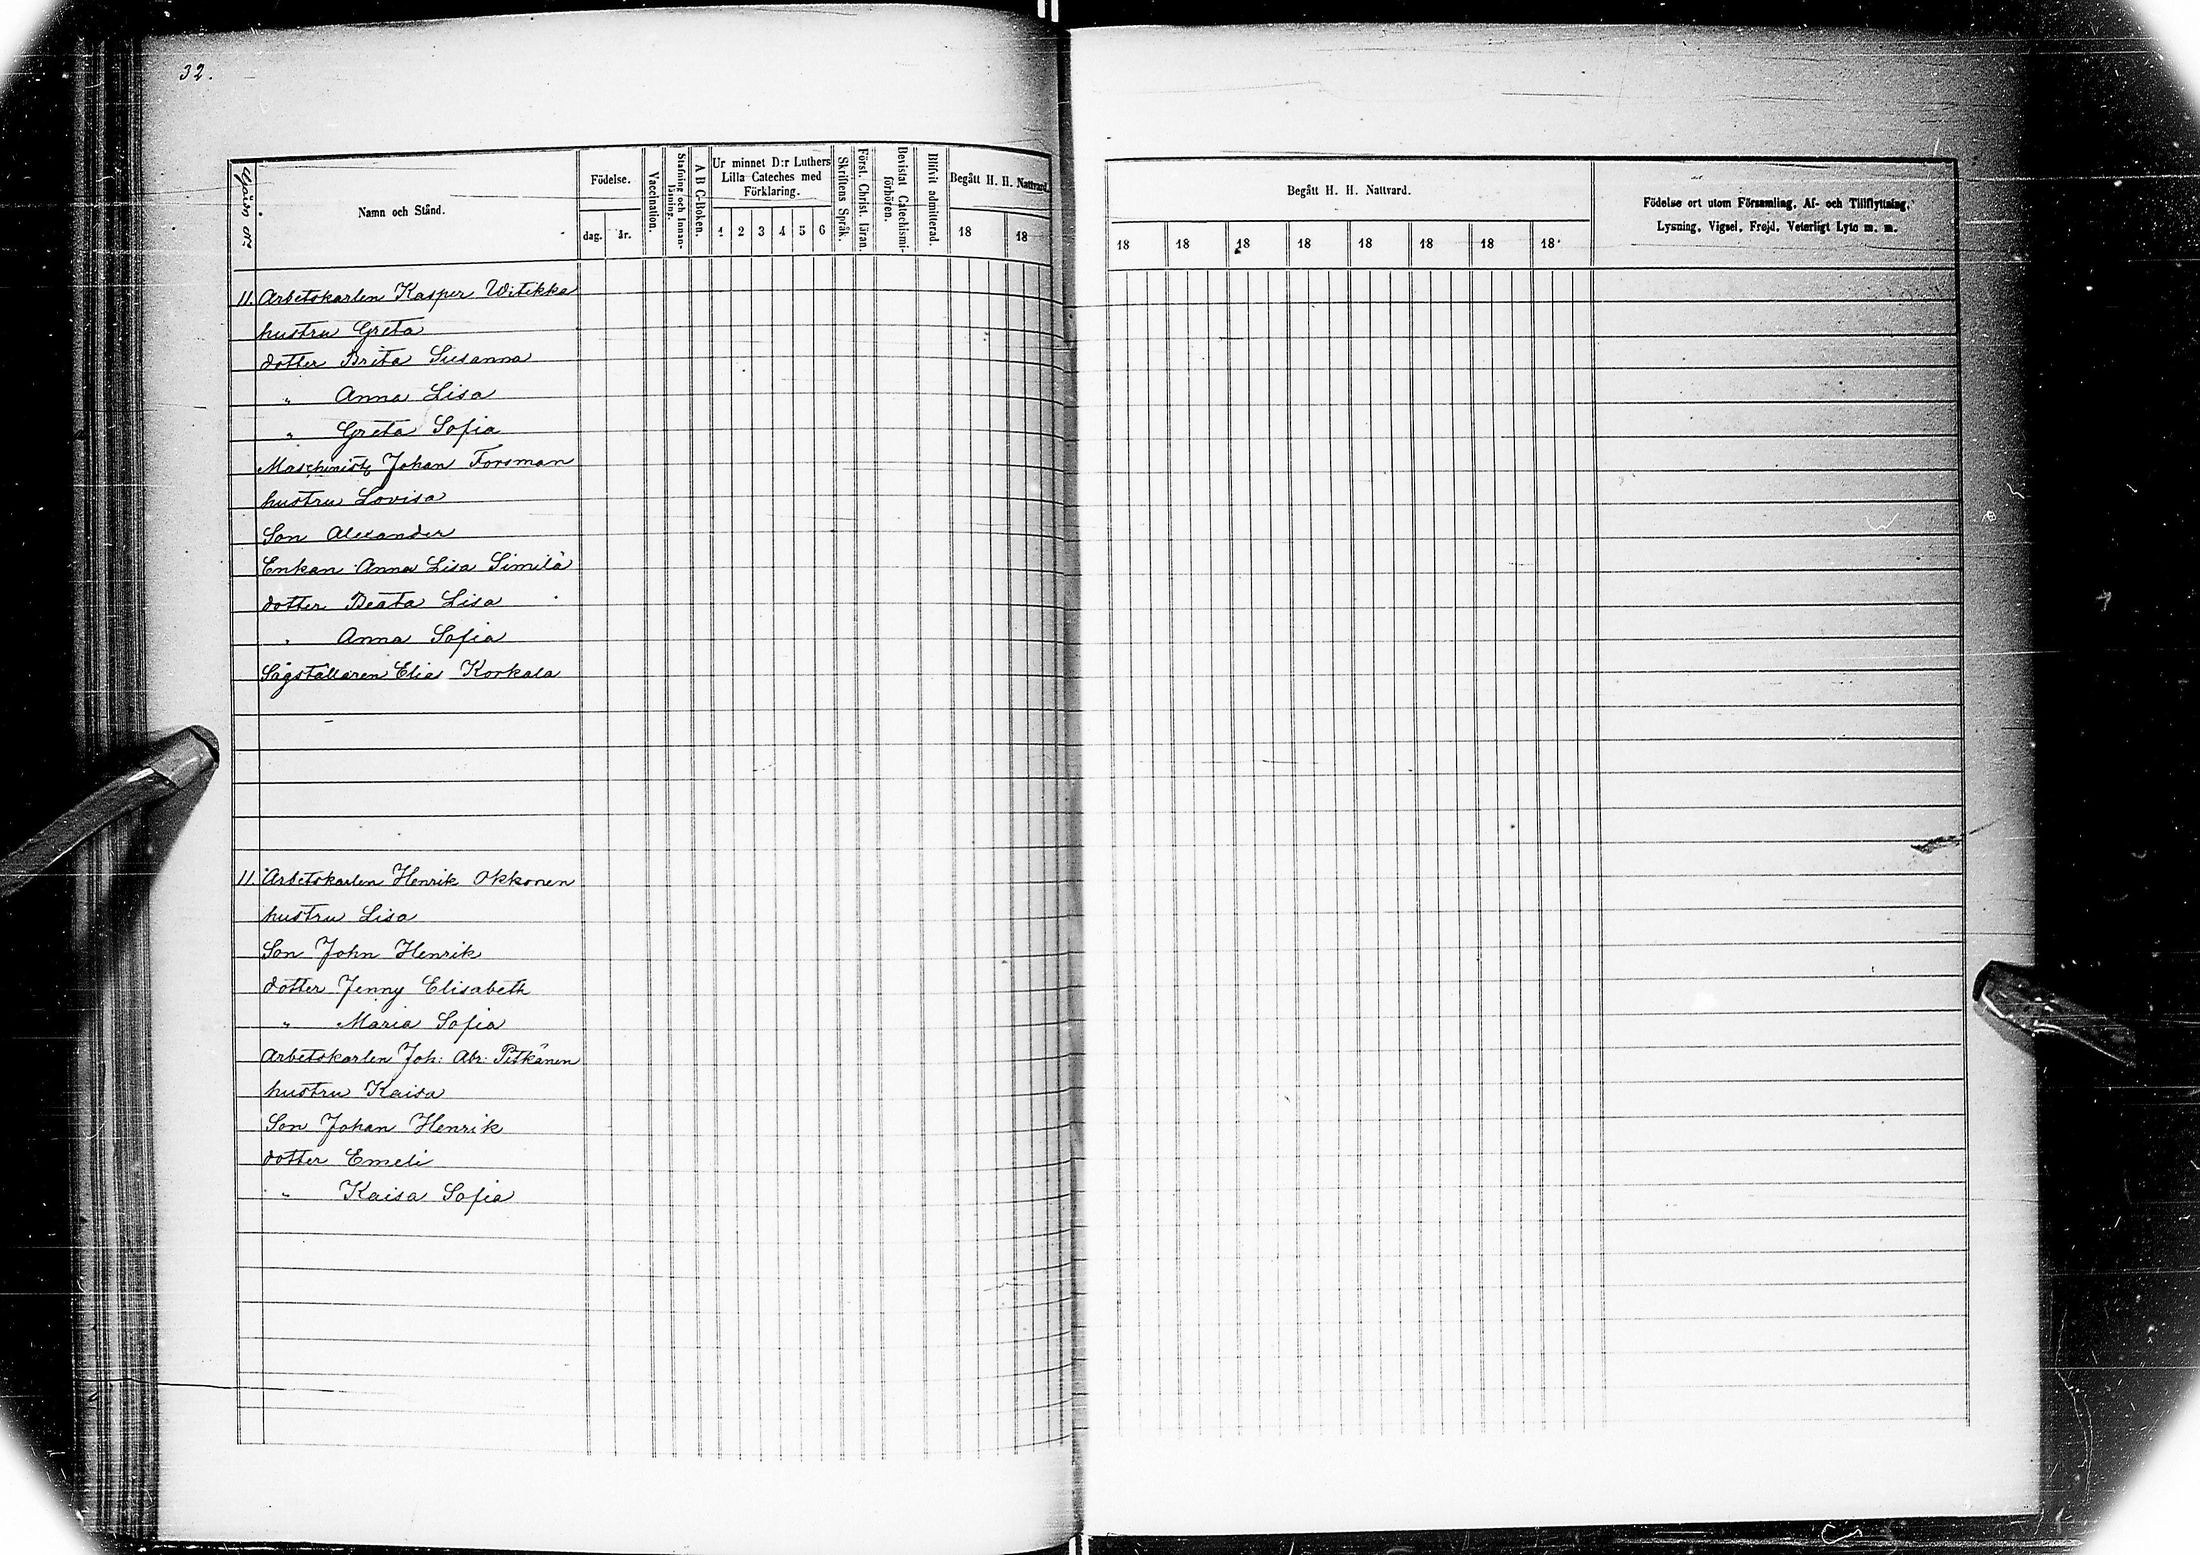 32.
Gården №
Namn och Stånd.
Födelse.
dag.
år.
Vaccination.
Stafning och Innanläsning.
A B C-Boken.
Ur minnet D:r Luthers
Lilla Cateches med
Förklaring.
1 2 3 4 5 6
Skriftens Språk.
Först. Christ. läran.
Bevistat Catechismi-
förhören.
Blifvit admitterad.
Begått H. H. Nattvard.
18 18
Begått H. H. Nattvard.
18 18 18 18 18 18 18 18
Födelse ort utom Församling, Af- och Tillflyttning,
Lysning, Vigsel, Frejd, Veterligt Lyte m. m.
11. Arbetskarlen Kasper Witikka
hustru Greta
dotter Brita Susanna
" Anna Lisa
" Greta Sofia
Maschinist Johan Forsman
hustru Lovisa
Son Alexander
Enkan Anna Lisa Similä
dotter Beata Lisa
" Anna Sofia
Sågställaren Elias Korkala
11. Arbetskarlen Henrik Okkonen
hustru Lisa
Son John Henrik
dotter Jenny Elisabeth
" Maria Sofia
Arbetskarlen Joh: Abr: Pitkänen
hustru Kaisa
Son Johan Henrik
dotter Emeli
" Kaisa Sofia